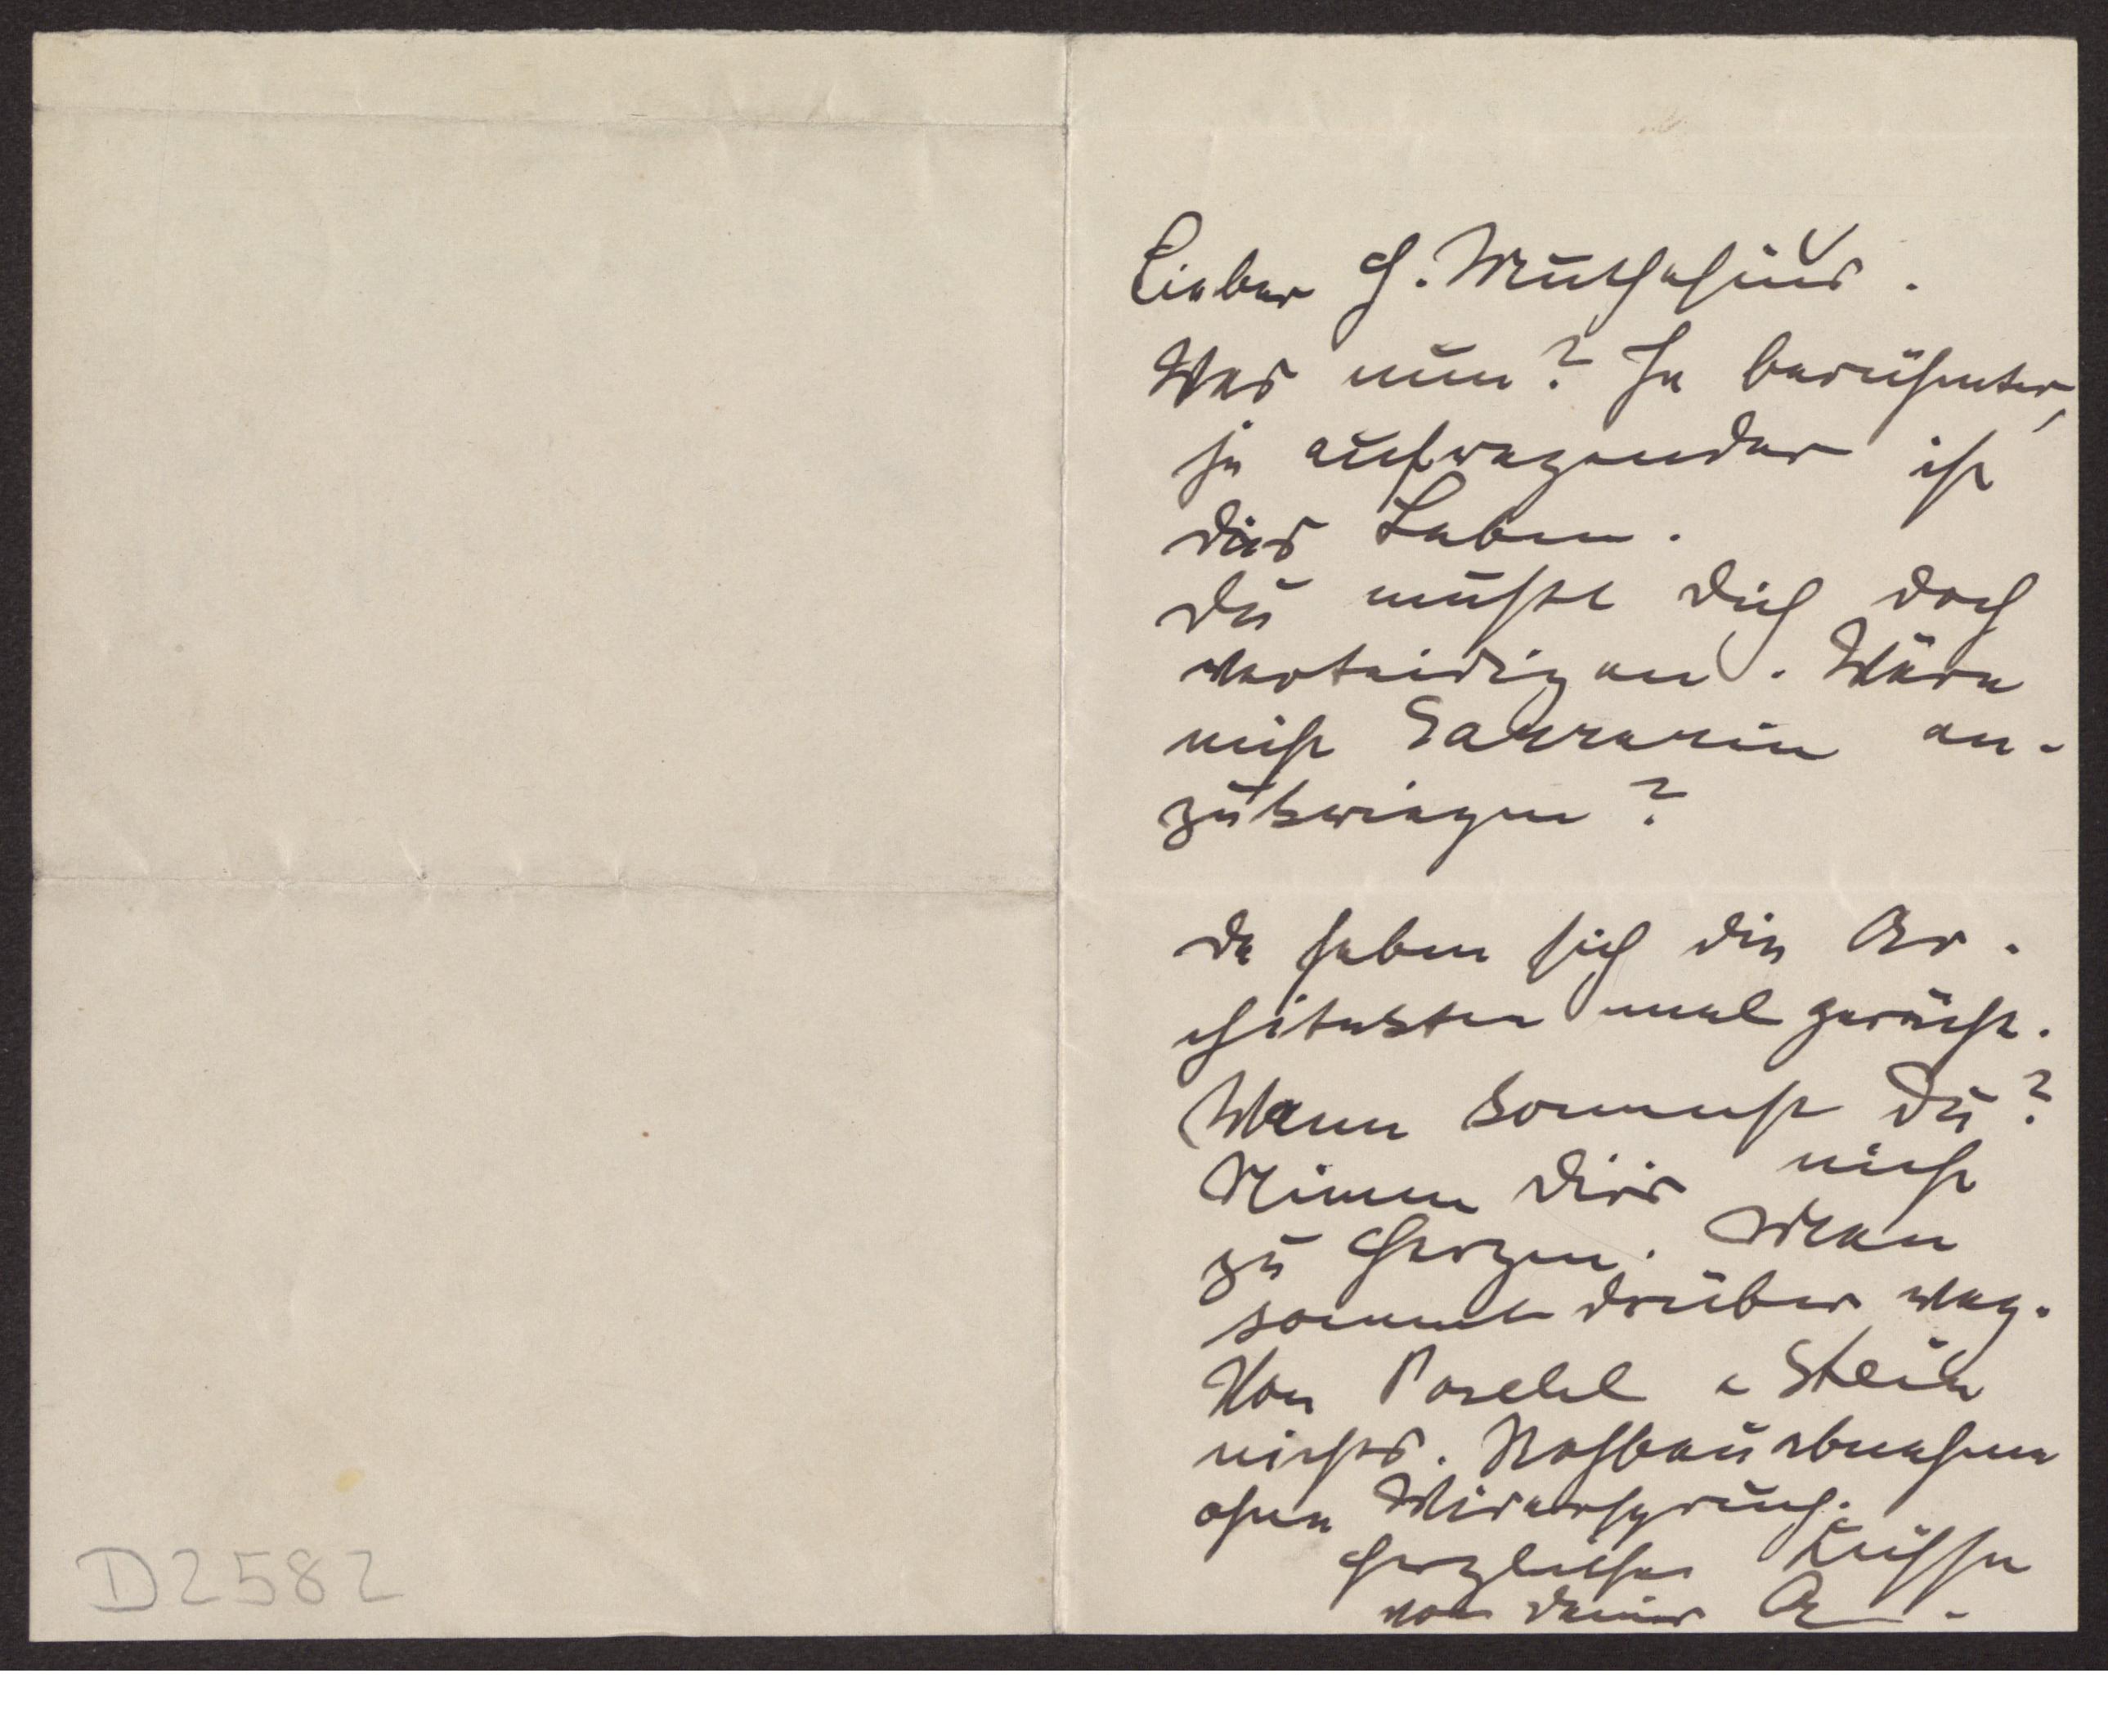 Lieber H. Muthesius.
Was nun? Je berühmter,
je aufregender ist
dies Leben.
Du mußt dich doch
verteidigen. Wäre
nicht Sarrazin an-
zukriegen?
Da haben sich die Ar-
chitekten mal gerächt.
Wann kommst Du?
Nimm dirs nicht
zu Herzen. Man
kommt drüber weg.
Von Poschel u Stein
nichts. Rohbauabnahme
ohne Widerspruch.
Herzliche Küsse
von deiner A
D2582